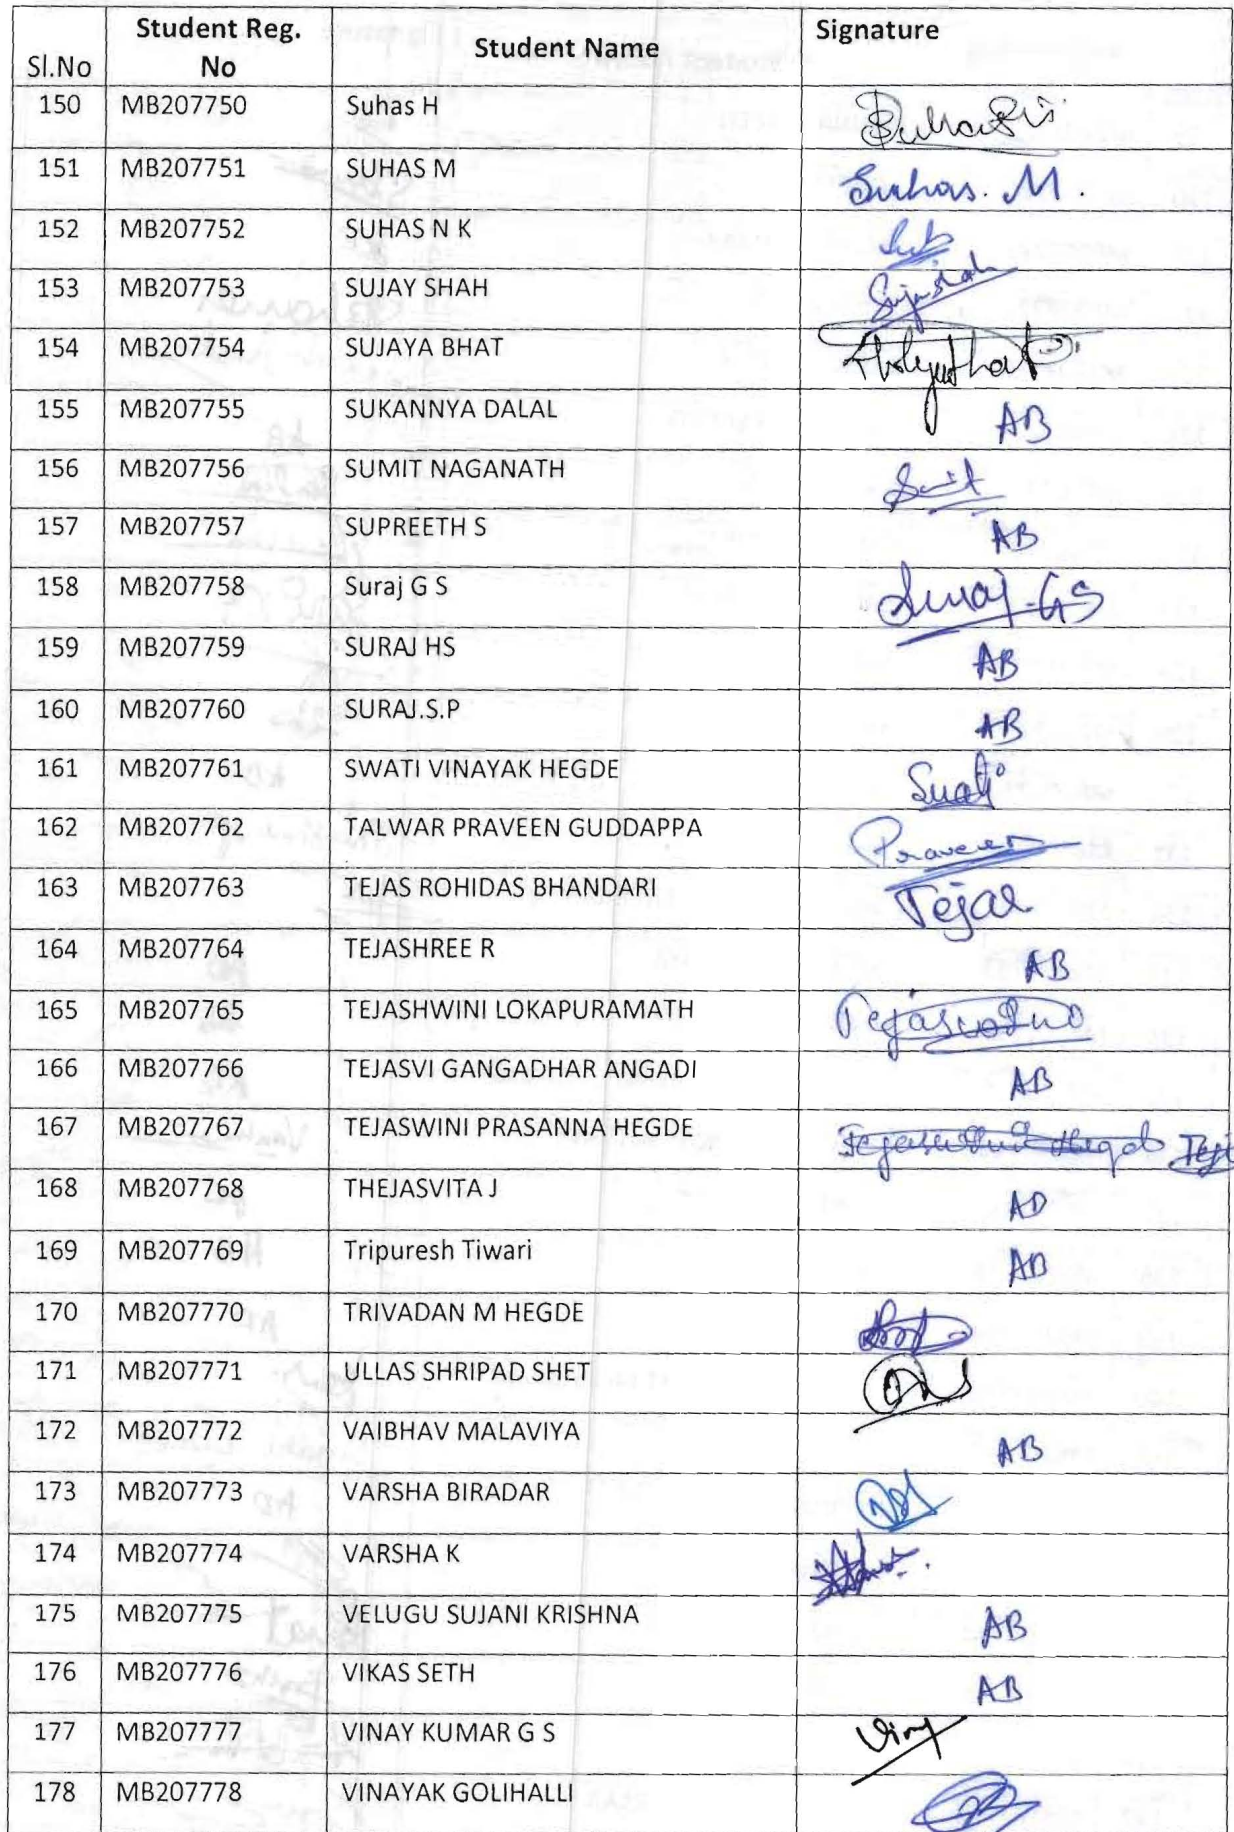 Sl.No Student Reg. No Student Name Signature
150 MB207750 Suhas H
151 MB207751 SUHAS M Suhas. M.
152 MB207752 SUHAS N K
153 MB207753 SUJAY SHAH
154 MB207754 SUJAYA BHAT
155 MB207755 SUKANNYA DALAL AB
156 MB207756 SUMIT NAGANATH
157 MB207757 SUPREETH S AB
158 MB207758 Suraj G S Suraj GS
159 MB207759 SURAJ HS AB
160 MB207760 SURAJ.S.P AB
161 MB207761 SWATI VINAYAK HEGDE
162 MB207762 TALWAR PRAVEEN GUDDAPPA Praveen
163 MB207763 TEJAS ROHIDAS BHANDARI Tejas
164 MB207764 TEJASHREE R AB
165 MB207765 TEJASHWINI LOKAPURAMATH
166 MB207766 TEJASVI GANGADHAR ANGADI AB
167 MB207767 TEJASWINI PRASANNA HEGDE
168 MB207768 THEJASVITA J AB
169 MB207769 Tripuresh Tiwari AB
170 MB207770 TRIVADAN M HEGDE
171 MB207771 ULLAS SHRIPAD SHET
172 MB207772 VAIBHAV MALAVIYA AB
173 MB207773 VARSHA BIRADAR
174 MB207774 VARSHA K
175 MB207775 VELUGU SUJANI KRISHNA AB
176 MB207776 VIKAS SETH AB
177 MB207777 VINAY KUMAR G S
178 MB207778 VINAYAK GOLIHALLI